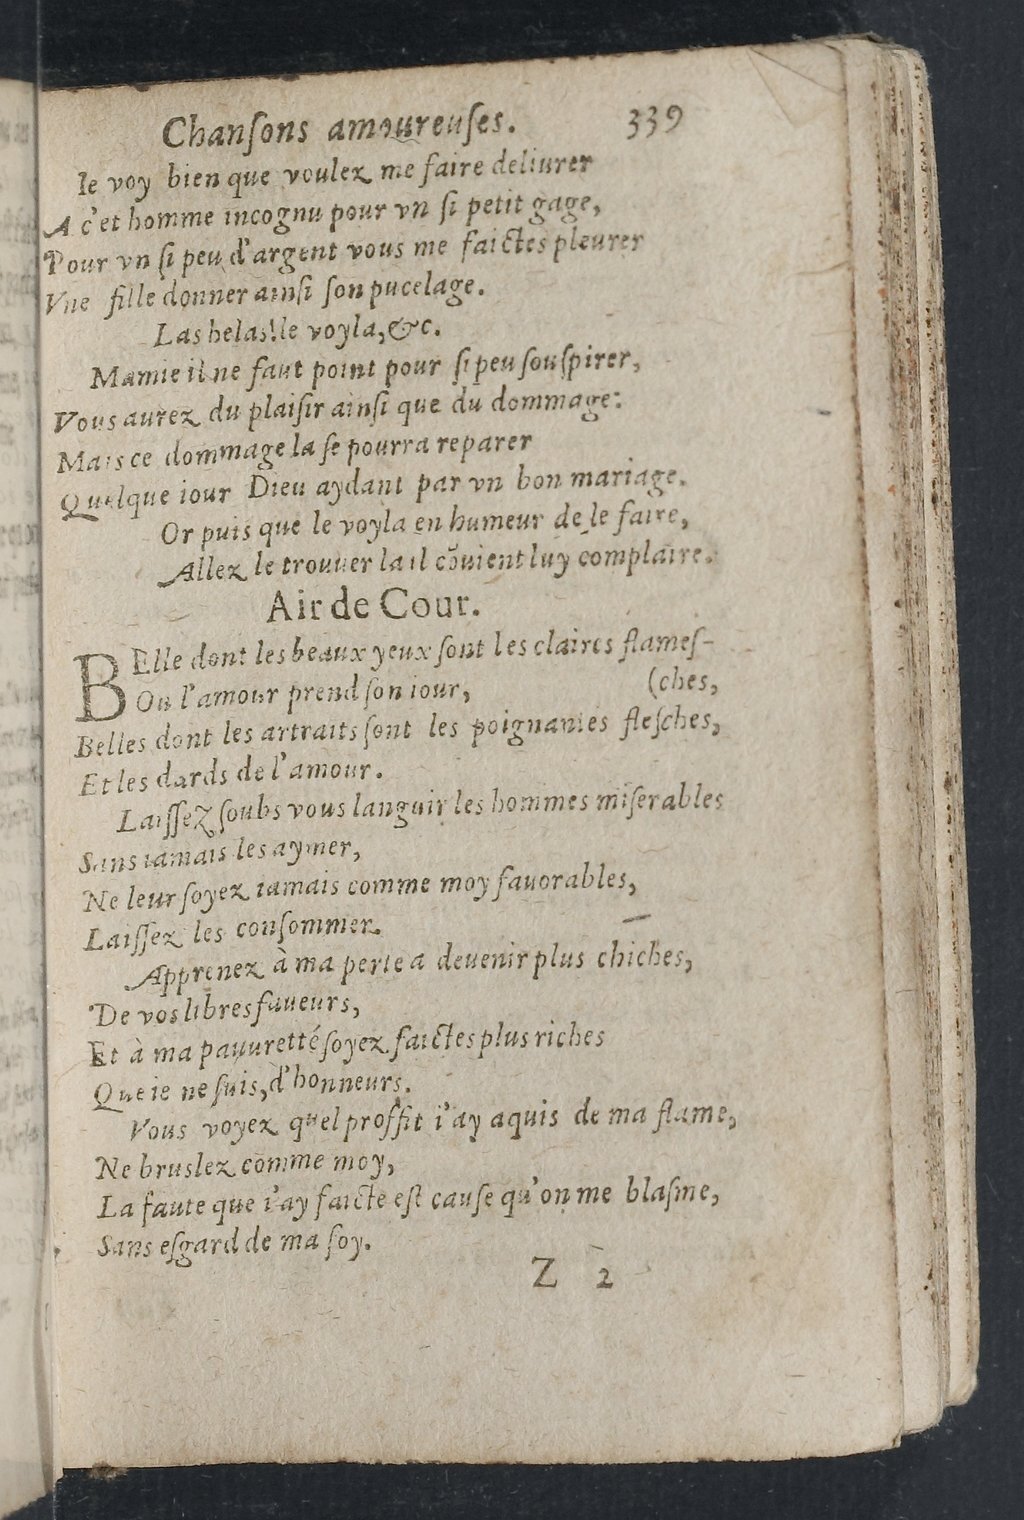 Chanſons amoureuſes. 339
Ie voy bien que voulez me faire deliurer
A c'et homme incognu pour vn ſi petit gage,
Pour vn ſi peu d'argent vous me faictes pleurer
Vne fille donner ainſi ſon pucelage.
Las helas! le voyla, &c.
Mamie il ne faut point pour ſi peu ſouſpirer,
Vous aurez du plaiſir ainſi que du dommage:
Mais ce dommage la ſe pourra reparer
Quelque iour Dieu aydant par vn bon mariage.
Or puis que le voyla en humeur de le faire,
Allez le trouuer la il cõuient luy complaire.
Air de Cour.
BElle dont les beaux yeux ſont les claires flameſ-
Ou l'amour prend ſon iour, (ches,
Belles dont les artraits ſont les poignantes fleſches,
Et les dards de l'amour.
Laiſſez ſoubs vous languir les hommes miſerables
Sans iamais les aymer,
Ne leur ſoyez iamais comme moy fauorables,
Laiſſez les conſommer.
Apprenez à ma perte a deuenir plus chiches,
De vos libres faueurs,
Et à ma pauuretté ſoyez faictes plus riches
Que ie ne ſuis, d'honneurs.
Vous voyez quel proffit i'ay aquis de ma flame,
Ne bruslez comme moy,
La faute que i'ay faicte eſt cauſe qu'on me blaſme,
Sans eſgard de ma foy.
Z 2